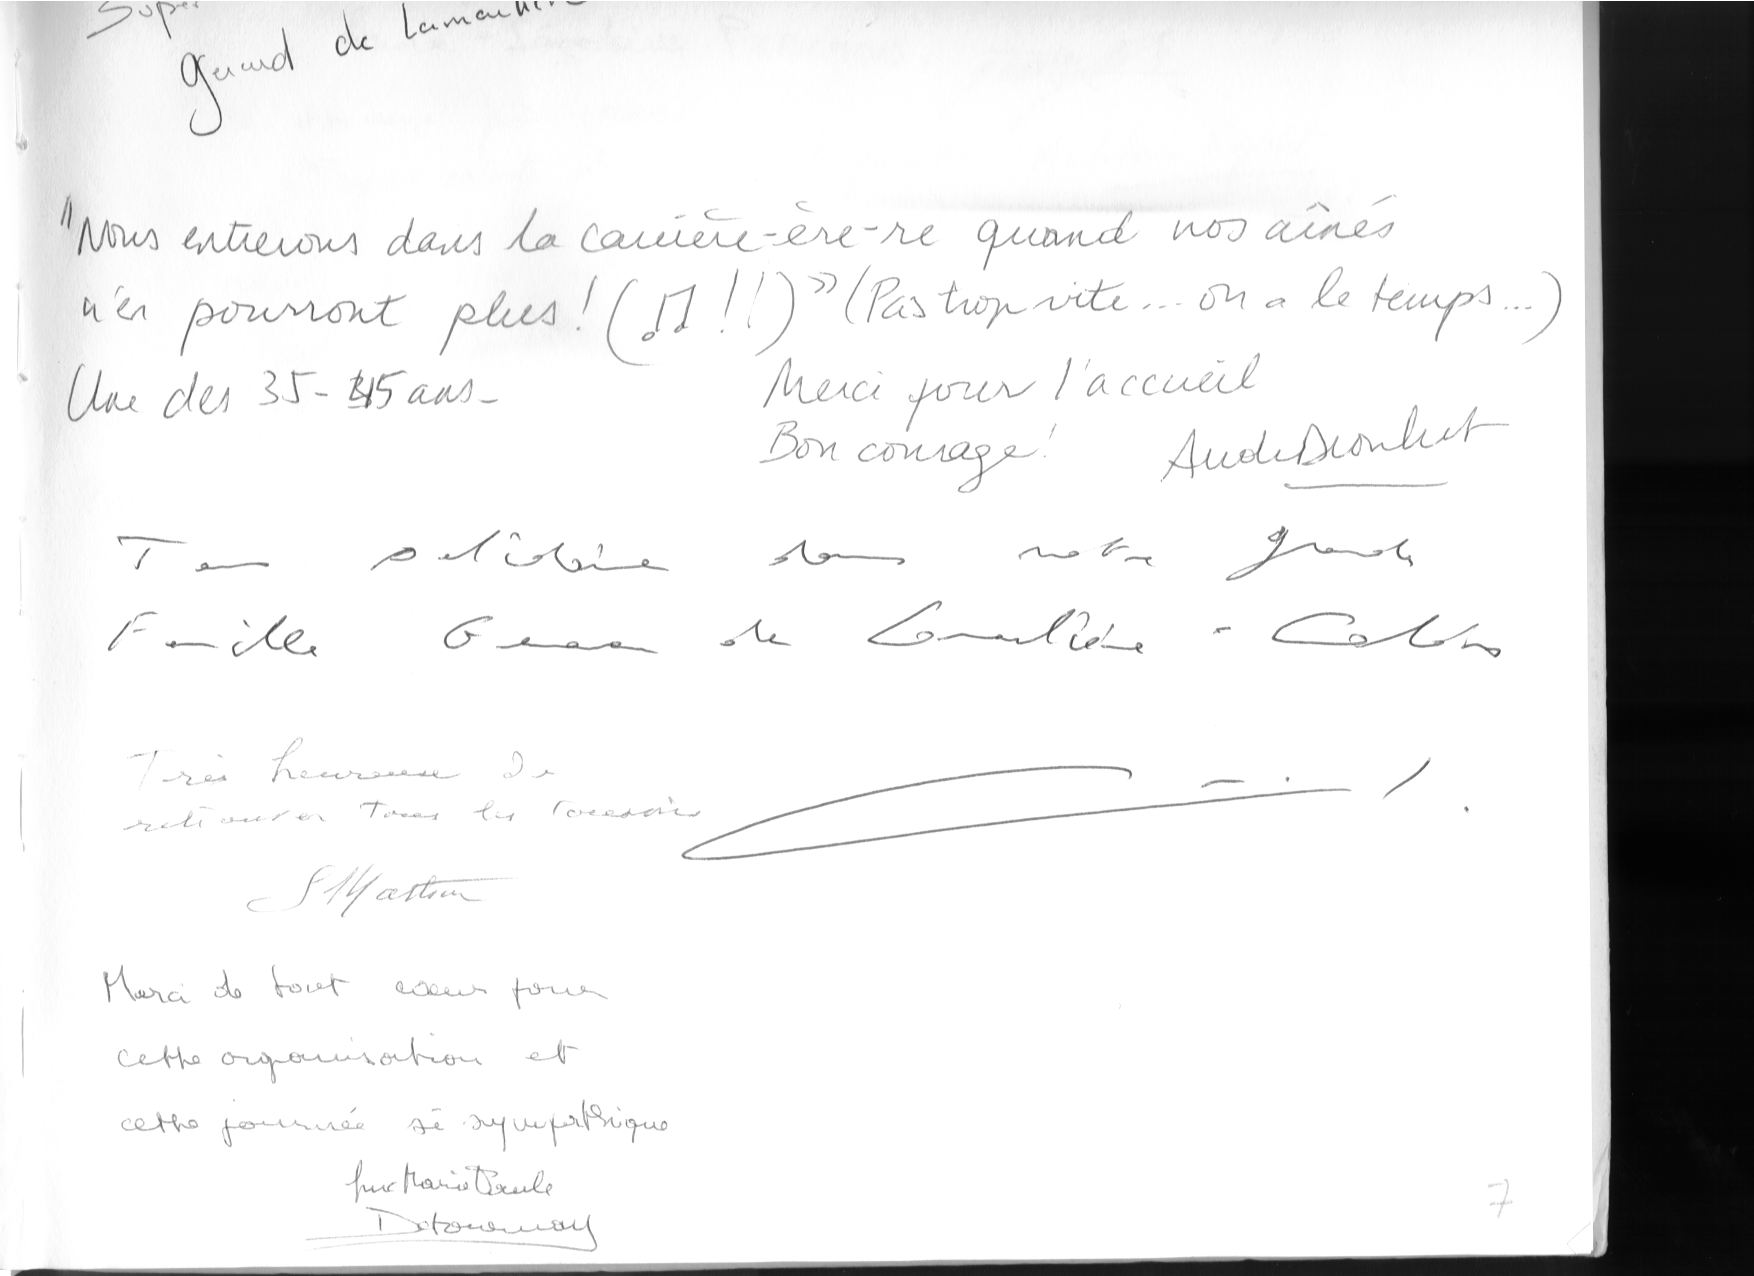 Super
Gérard de Lamau
"Nous entrerons dans la carrière-ère-re quand nos aînés
n'en pourront plus! (♫!!)" (Pas trop vite... on a le temps...)
Une des 35-45 ans-
Merci pour l'accueil
Bon courage!
Aude
Tous solidaire dans notre grande
Famille de
Très heureuse de
retrouver tous les cousins
S Martin
Merci de tout coeur pour
cette organisation et
cette journée si sympathique
Marie Paule
7